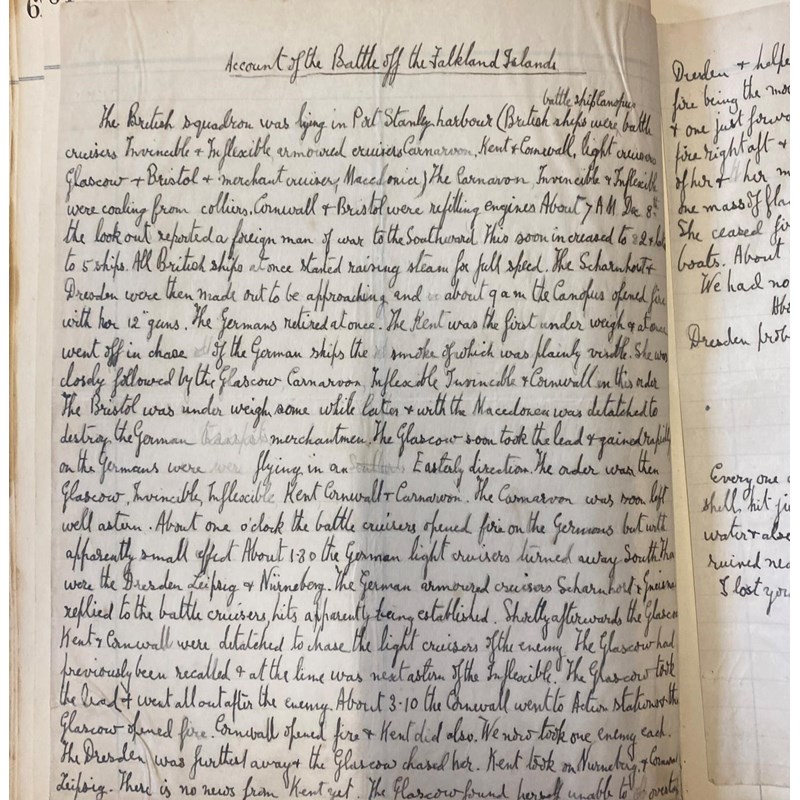 6
Account of the Battle off the Falkland Islands
battle ship Canopus
The British squadron was lying in Port Stanley harbour (British ships were, battle
cruisers Invincible & Inflexible, armoured cruisers Carnarvon, Kent & Cornwall, light cruisers
Glascow & Bristol & merchant cruiser, Macedonia) The Carnarvon, Invincible & Inflexible
were coaling from colliers. Cornwall & Bristol were refitting engines About 7 A.M. Dec 8th
the look out reported a foreign man of war to the Southward This soon increased to 2 &
to 5 ships. All British ships at once started raising steam for full speed. The Scharnhort &
Dresden were then made out to be approaching and about 9 am the Canopus opened fire
with her 12" guns. The Germans retired at once. The Kent was the first under weigh & at once
went off in chase of the German ships the smoke of which was plainly visible. She was
closely followed by the Glascow Carnarvon, Inflexable Invincible & Cornwall in this order
The Bristol was under weigh some while later & with the Macedonea was detatched to
destroy the German merchantmen. The Glascow soon took the lead & gained rapidly
on the Germans were flying in an Easterly direction. The order was then
Glascow, Invincible, Inflexcible Kent Cornwall & Carnarvon. The Carnarvon was soon left
well astern. About one o'clock the battle cruisers opened fire on the Germans but with
apparently small effect About 1-30 the German light cruisers turned away South Tha
were the Dresden Leipsig & Nürneberg. The German armoured cruisers Scharnhort & Gneisena
replied to the battle cruisers, hits apparently being established. Shortly afterwards the Glasco
Kent & Cornwall were detatched to chase the light cruisers of the enemy. The Glascow had
previously been recalled & at the time was next astern of the Inflexible. The Glascow took
the lead & went all out after the enemy. About 3-10 the Cornwall went to Action stations the
Glascow opened fire. Cornwall opened fire & Kent did also. We now took one enemy each.
The Dresden was furthest away & the Glascow chased her. Kent took on Nurneburg, & Cornwal
Leipsig. There is no news from Kent yet. The Glascow found herself unable to overtak
Dresden & helpe
fire being the mo
& one just forwa
fire right aft &
of her & her m
one mass of fla
She ceased fi
boats. About
We had no
Abo
Dresden prob
Every one
shells hit ju
water & alse
ruined nea
I lost you